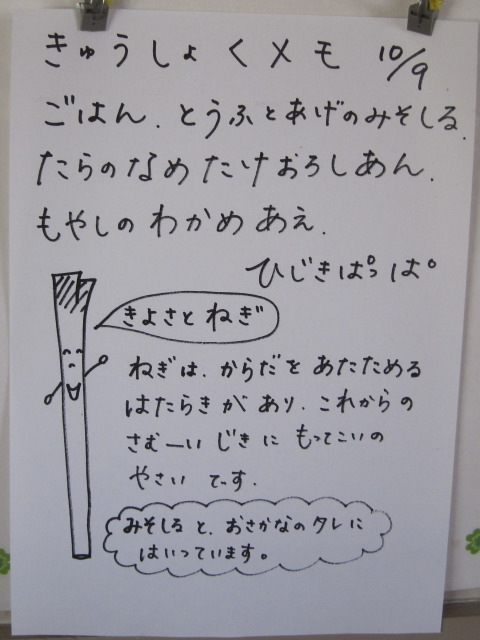 きゅうしょくメモ 10/9
ごはん. とうふとあげのみそしる.
たらのなめたけおろしあん.
もやしのわかめあえ.
ひじきぱっぱ。
きよさと ねぎ
ねぎは. からだを あたためる
はたらきが あり. これからの
さむーい じきに もってこいの
やさい でっす.
みそしると、おさかなのタレに
はいっています。